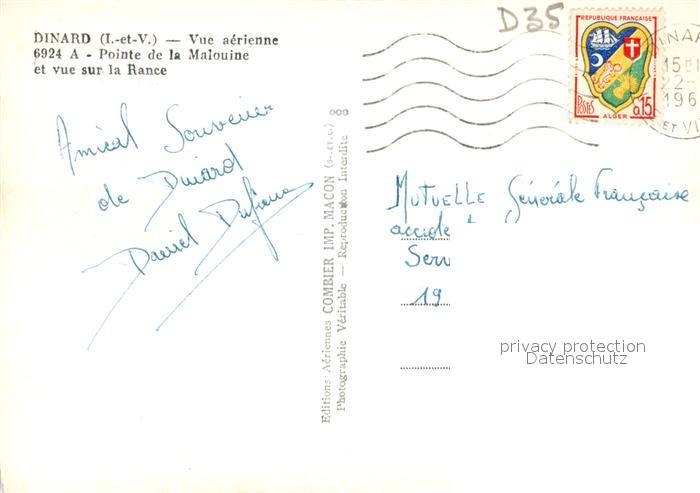 DINARD (I.-et-V.) — Vue aérienne
6924 A - Pointe de la Malouine
et vue sur la Rance
D35
REPUBLIQUE FRANÇAISE
POSTES
0,15
ALGER
DINAR
15
22-
196
ET VI
Amical Souvenir
de Dinard
Daniel
Editions Aériennes COMBIER IMP. MACON (S.-et-L.)
Photographie Véritable — Reproduction Interdite
Mutuelle Générale Française
accide
Serv
19
privacy protection
Datenschutz